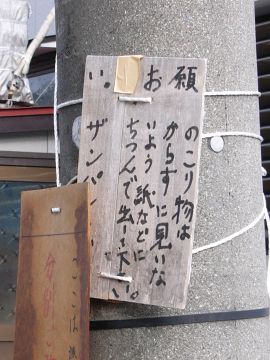 お願い。
のこり物は
からすに見いな
いよう紙などに
ちつんで出して下さい。
ザンパン
ここは
分別